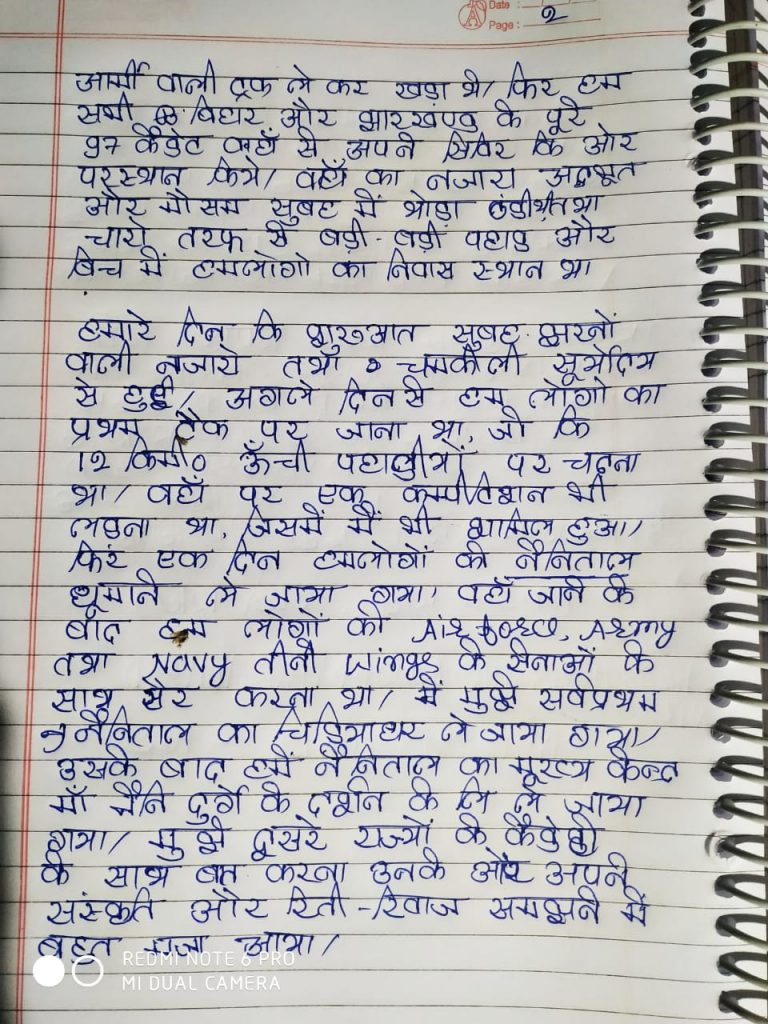 Date :
Page : 2
आर्मी वाली ट्रक ले कर खड़ा थे। फिर हम
सभी बिहार और झारखण्ड के पूरे
97 कैडेट वहाँ से अपने सिविर कि ओर
परस्थान किये। वहाँ का नजारा अदभूत
और मौसम सुबह में थोड़ा ठंडी था
चारो तरफ से बड़ी-बड़ी पहाड़ और
बिच में हमलोगो का निवास स्थान था
हमारे दिन कि शुरुआत सुबह झरनों
वाली नजारो तथा चमकीली सूर्योदय
से हुई। अगले दिन से हम लोगो का
प्रथम ट्रैक पर जाना था, जो कि
12 किमी० ऊँची पहाड़ीयों पर चढ़ना
था। वहाँ पर एक कम्पीटिशन भी
लड़ना था, जिसमें मैं भी शामिल हुआ।
फिर एक दिन हमलोगों को नैनिताल
घूमाने ले जाया गया। वहाँ जाने के
बाद हम लोगों को Air force, Army
तथा Navy तीनो wings के सेनाओं के
साथ सैर करना था। में मुझे सर्वप्रथम
नैनिताल का चिड़ियाघर ले जाया गया।
उसके बाद हमें नैनिताल का मुख्य केन्द्र
माँ नैनि दुर्गे के दर्शन के लि ले जाया
गया। मुझे दूसरे राज्यों के कैडेटो
के साथ बात करना उनके और अपनी
संस्कृति और रिती-रिवाज समझने में
बहुत मजा आया।
REDMI NOTE 6 PRO
MI DUAL CAMERA